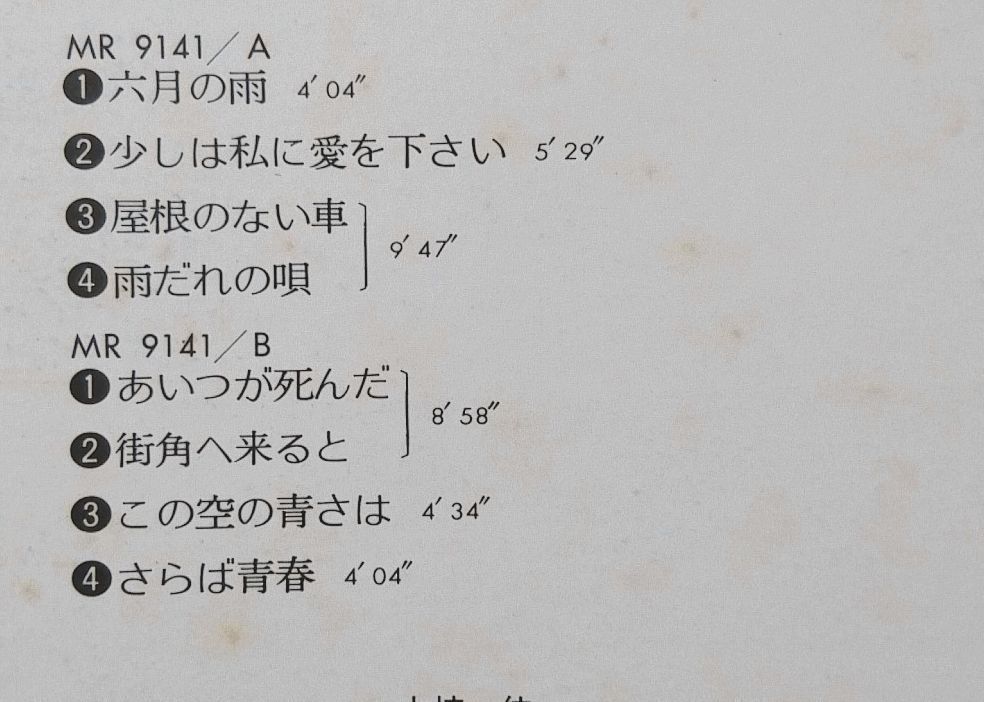 MR 9141／A
❶六月の雨 4′04″
❷少しは私に愛を下さい 5′29″
❸屋根のない車
❹雨だれの唄
9′47″
MR 9141／B
❶あいつが死んだ
❷街角へ来ると
8′58″
❸この空の青さは 4′34″
❹さらば青春 4′04″